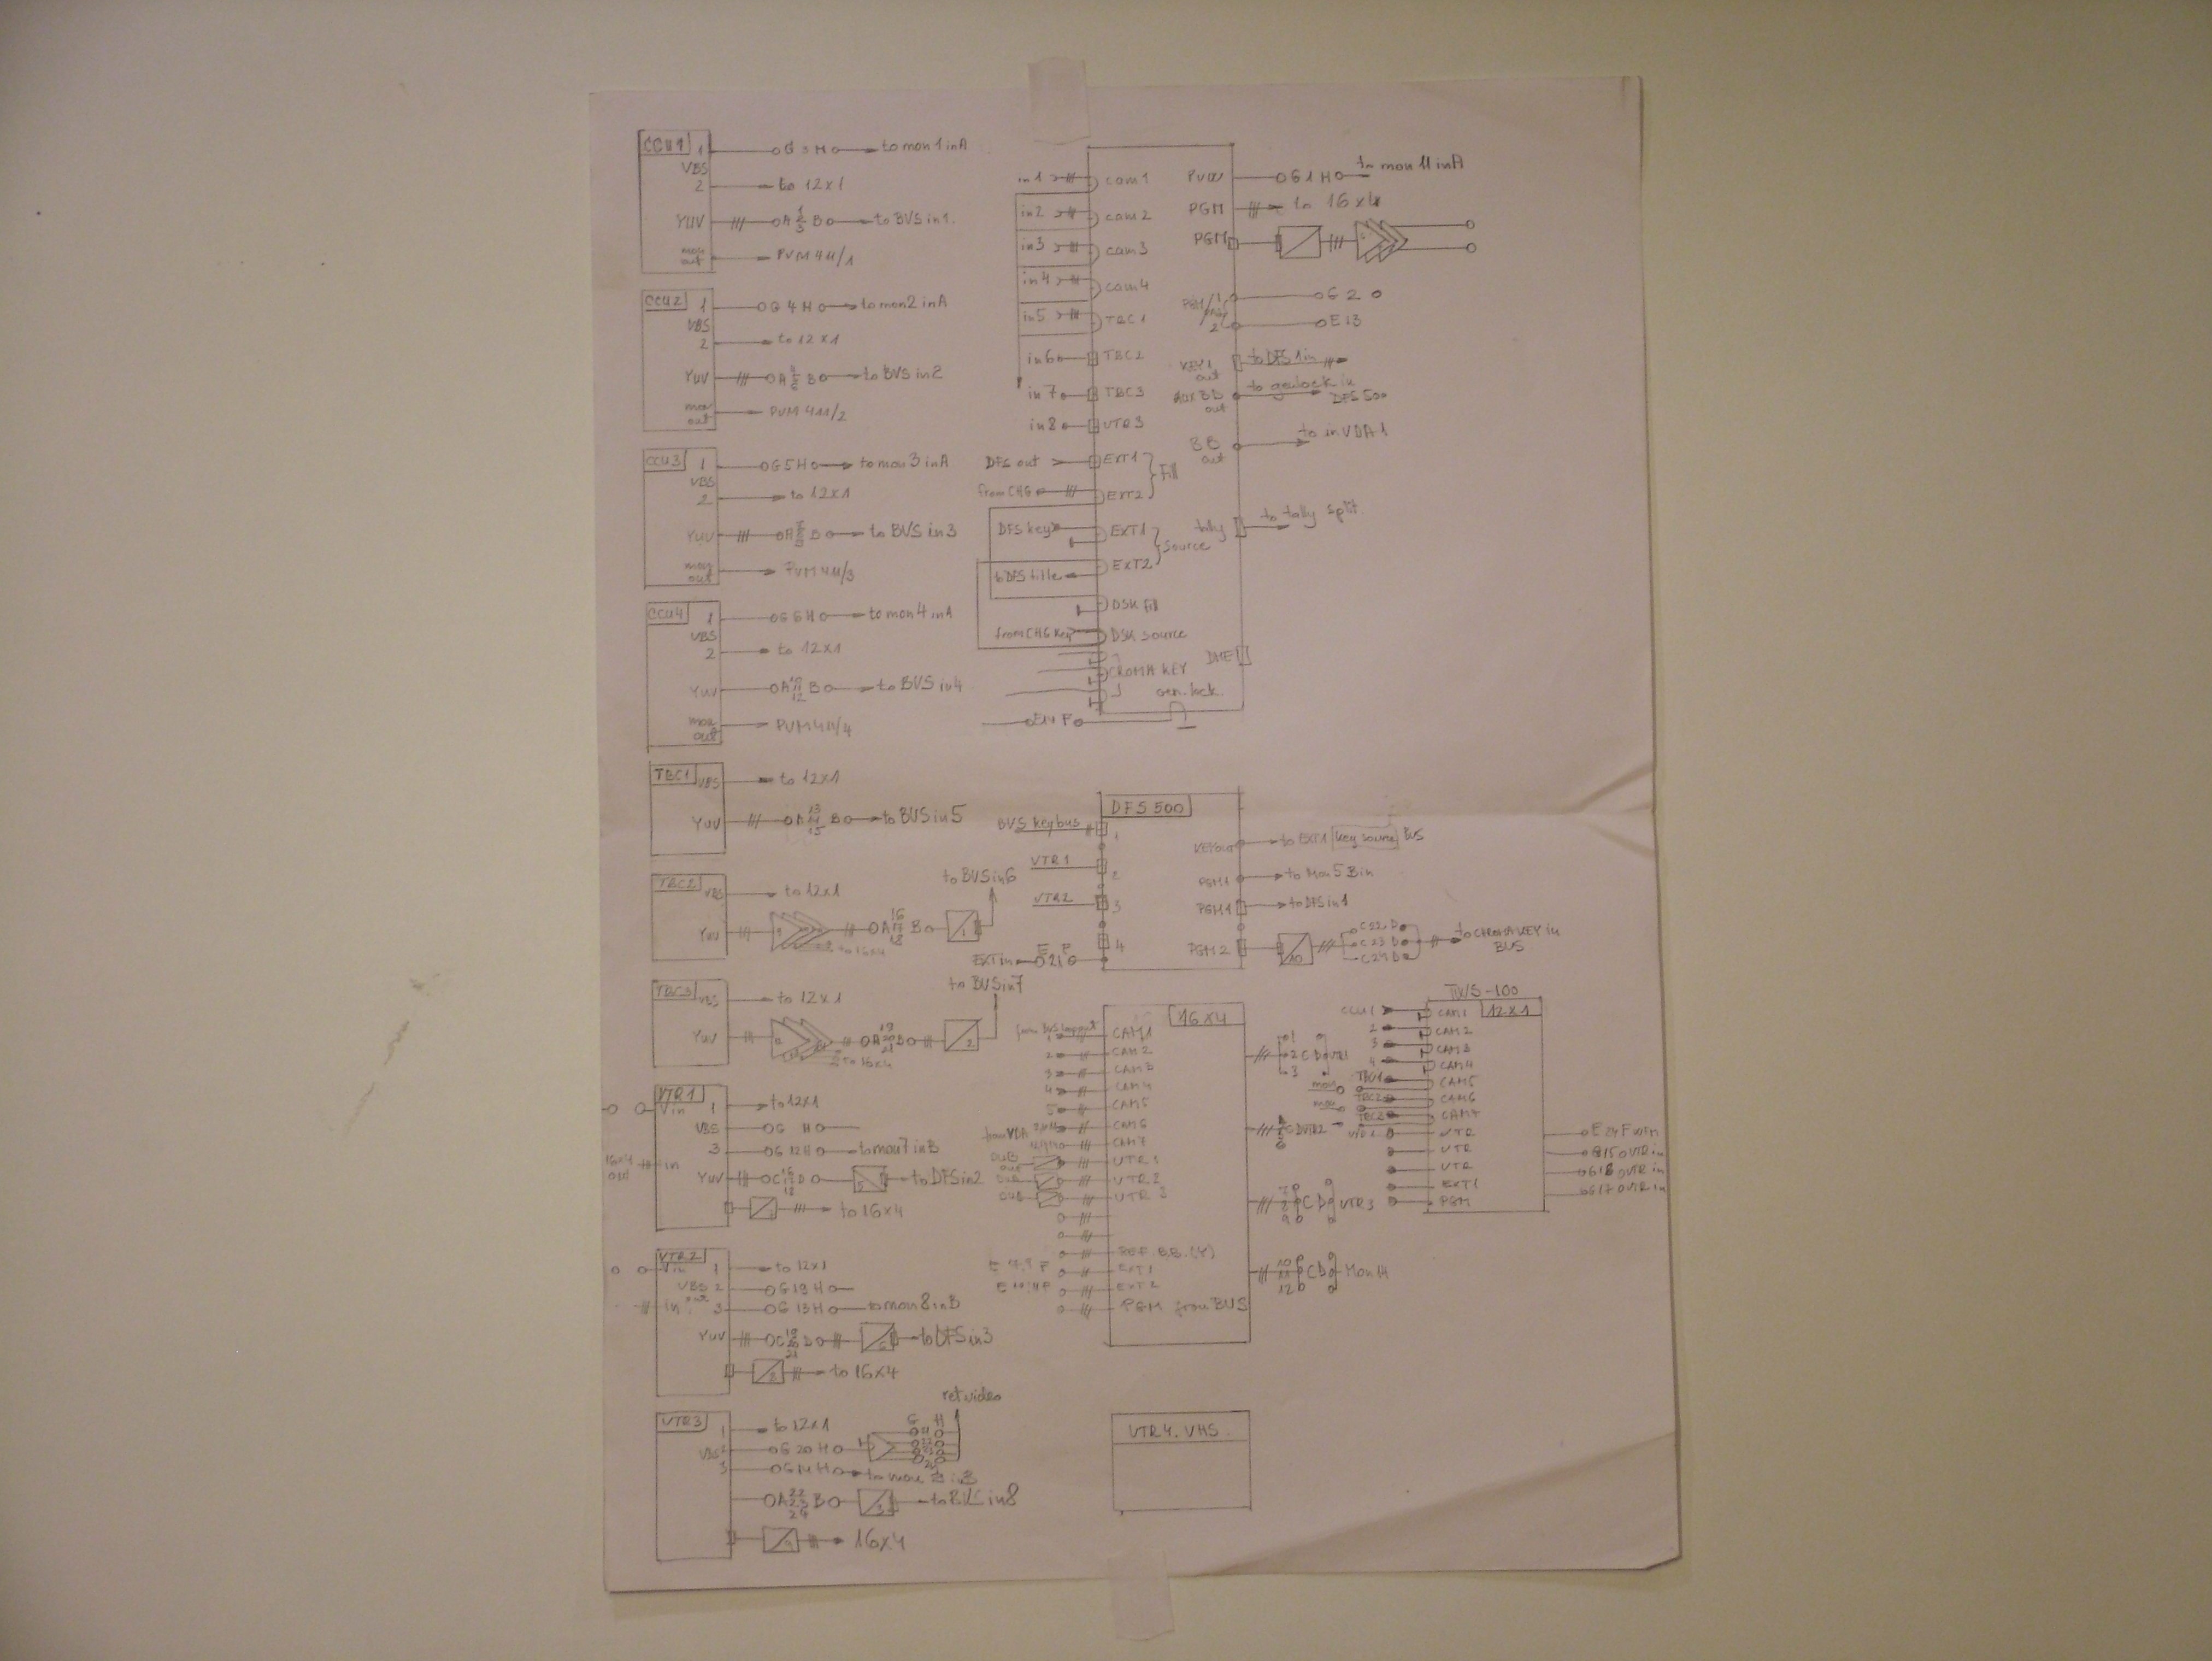 CCU1
1 G 3 H to mon 1 in A
VBS
2 to 12x1
YUV A 1 2 3 B to BVS in 1.
mon out PVM 411/1
CCU2
1 G 4 H to mon 2 in A
VBS
2 to 12x1
YUV A B to BVS in 2
mon out PVM 411/2
CCU3
1 G 5 H to mon 3 in A
VBS
2 to 12x1
YUV A B to BVS in 3
mon out PVM 411/3
CCU4
1 G 6 H to mon 4 in A
VBS
2 to 12x1
YUV A 10 11 12 B to BVS in 4
mon out PVM 411/4
TBC1
VBS to 12x1
YUV A 13 14 15 B to BUS in 5
TBC2
VBS to 12x1
to BUS in 6
YUV A 16 17 18 B 1
to 16x4
TBC3
VBS to 12x1
to BUS in 7
YUV A 19 20 21 B 2
to 16x4
VTR1
V in 1 to 12x1
VBS G H
3 G 12 H to mon 7 in B
16x4 out in
YUV C 16 17 18 D 5 to DFS in 2
to 16x4
VTR2
V in 1 to 12x1
VBS 2 G 19 H
in 3 G 13 H to mon 8 in B
YUV C 19 20 21 D 6 to DFS in 3
to 16x4
VTR3
ret video
1 to 12x1
G H
VBS 2 G 20 H
3 G 14 H to mon in B
A 22 23 24 B 3 to in 8
16x4
in 1 cam 1
in 2 cam 2
in 3 cam 3
in 4 cam 4
in 5 TBC 1
in 6 TBC 2
in 7 TBC 3
in 8 VTR 3
DFS out EXT1
Fill
from CHG EXT2
DFS key EXT1
Source
EXT2
to DFS title
DSK fill
from CHG key DSK source
CROMA KEY
DME
Gen. lock
E 11 F
PVW G 1 H to mon 11 in A
PGM to 16x4
PGM
PGM/ 1 G 2
2 E 13
KEY1 out to DFS 1 in
AUX BB out to genlock in DFS 500
BB out to in VDA 1
tally to tally split.
DFS 500
BVS key bus 1
VTR1 2
VTR2 3
4
EXT in E 21 F
KEY out to EXT1 key source BUS
PGM1 to Mon 5 B in
PGM1 to DFS in 1
PGM2 10 C 22 D C 23 D C 24 D to CHROMA KEY in BUS
16x4
1 CAM1
2 CAM 2
3 CAM 3
4 CAM 4
5 CAM 5
from VDA CAM 6
CAM 7
DUB out VTR 1
DUB VTR 2
DUB VTR 3
REF. B.B. (Y)
EXT1
EXT2
PGM from BUS
1 2 3 C D VTR1
C D VTR2
7 8 9 C D VTR3
10 11 12 C D Mon 14
TWS-100
12x1
CCU 1 CAM1
2 CAM 2
3 CAM 3
4 CAM 4
TBC1 CAM5
mon TBC2 CAM6
mon TBC3 CAM7
VTR
VTR
VTR
EXT1
PGM
E 24 F WFM
G 15 VTR in
G 16 VTR in
G 17 VTR in
VTR 4. VHS.